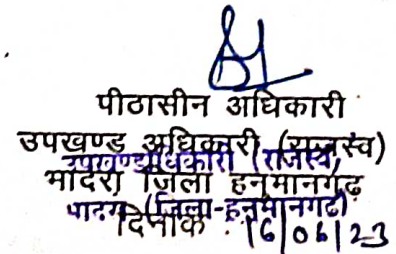 पीठासीन अधिकारी
उपखण्ड अधिकारी (राजस्व)
उपखण्ड अधिकारी (राजस्व)
भादरा जिला हनुमानगढ़
भादरा (जिला-हनुमानगढ़)
दिनांक 16/06/23